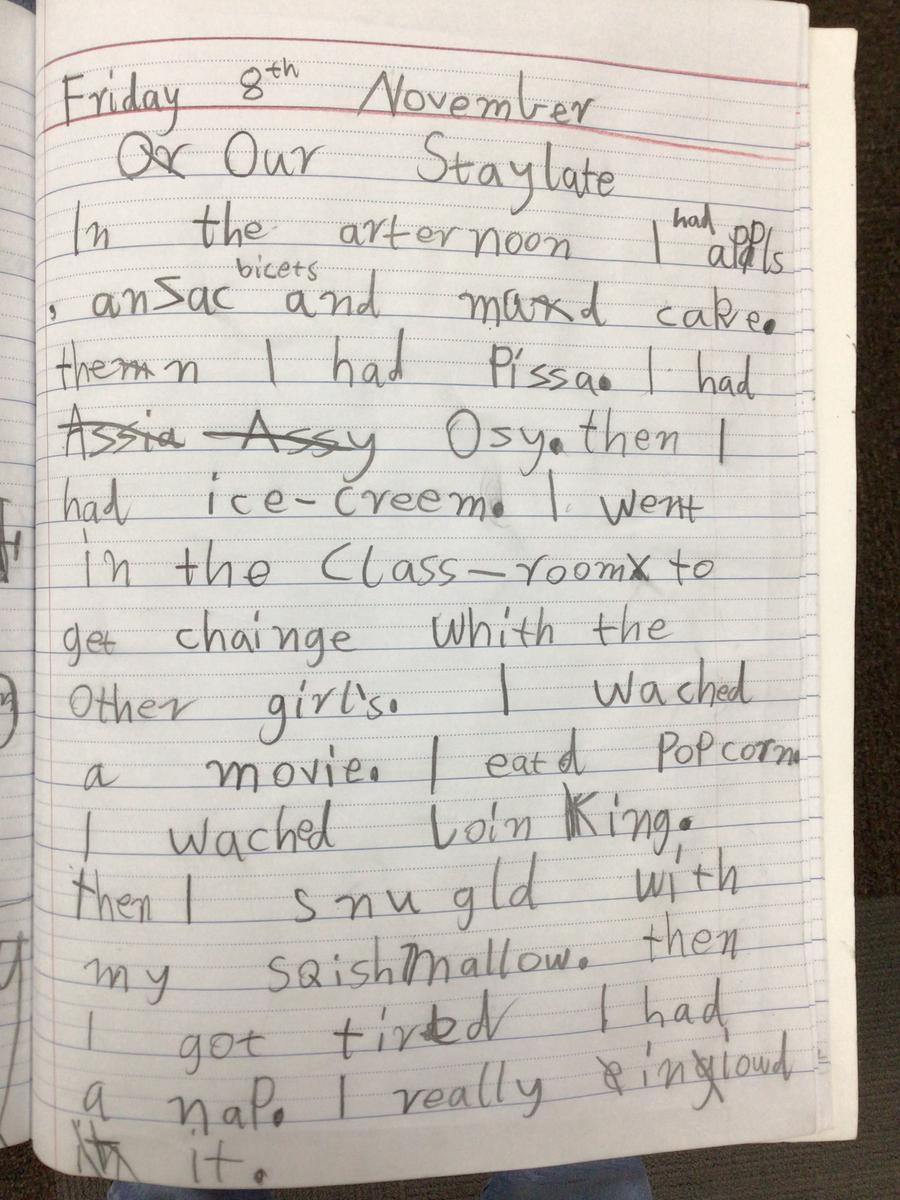 Friday 8th November
Or Our Staylate
In the arternoon I had appls
, an Sac bicets and maxd cake.
then I had Pissa. I had
Assia Assy Osy. then I
had ice-creem. I went
in the Class-room to
get chainge whith the
Other girl's. I wached
a movie. I eatd Popcorn.
I wached Loin King.
then I snugld with
my sqishmallow. then
I got tired I had
a nap. I really injiowd
it.